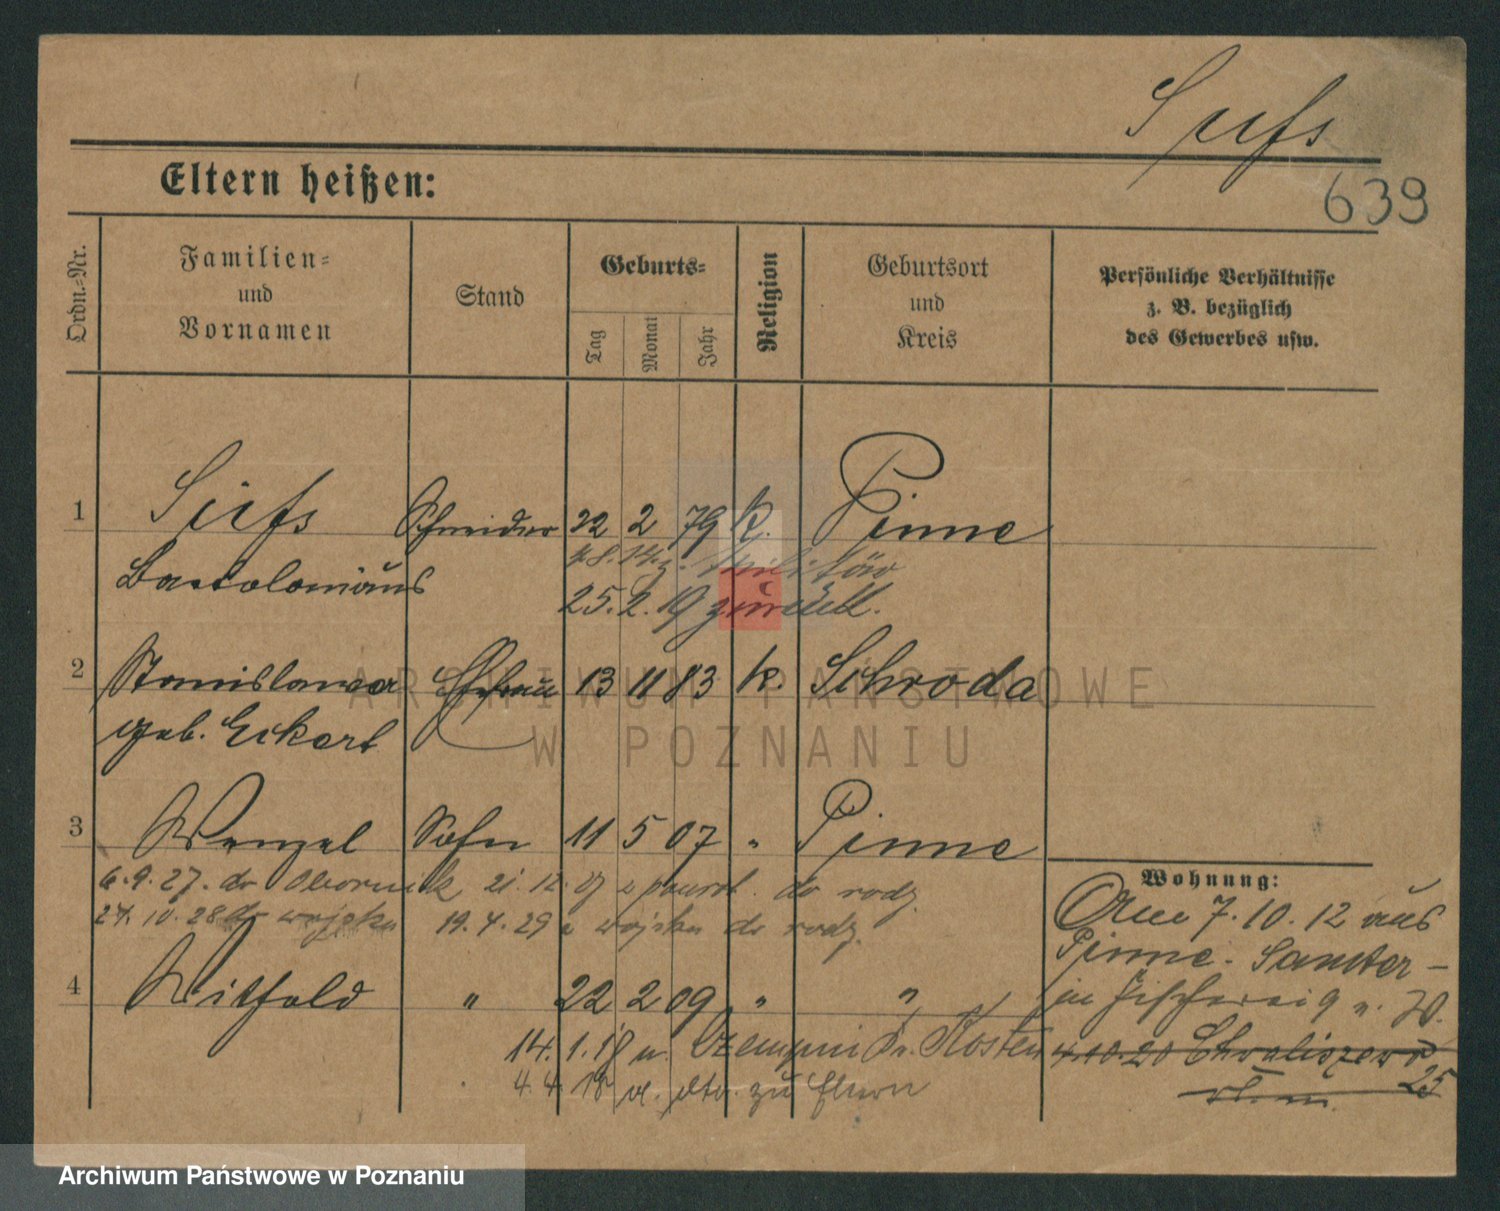 Sufs
639
Eltern heißen:
Ordn.-Nr.
Familien-
und
Vornamen
Stand
Geburts-
Tag
Monat
Jahr
Religion
Geburtsort
und
Kreis
Persönliche Verhältnisse
z. B. bezüglich
des Gewerbes usw.
1 Sufs Schneider 22 2 79 k. Pinne
Bartolomäus
z. Militär
25. 2. 19 zurück.
2 Stanislawa Ehefrau 13 11 83 k. Schroda
geb. Eckert
3 Wenzel Sohn 11 5 07 " Pinne
6. 9. 27. do Obornik 21. 12. 27 z powrot. do rodz.
24. 10. 28 do wojska 19. 4. 29 z wojska do rodz.
4 Withold " 22 2 09 " "
14. 1. 18 n. Czempin Kr. Kosten
4. 4. 18 v. dto. zu Eltern
Wohnung:
Am 7. 10. 12 aus
Pinne - Samter -
in Fischerei 9 n. W.
4.10.20 Chwaliszewo
25
ARCHIWUM PAŃSTWOWE
W POZNANIU
Archiwum Państwowe w Poznaniu